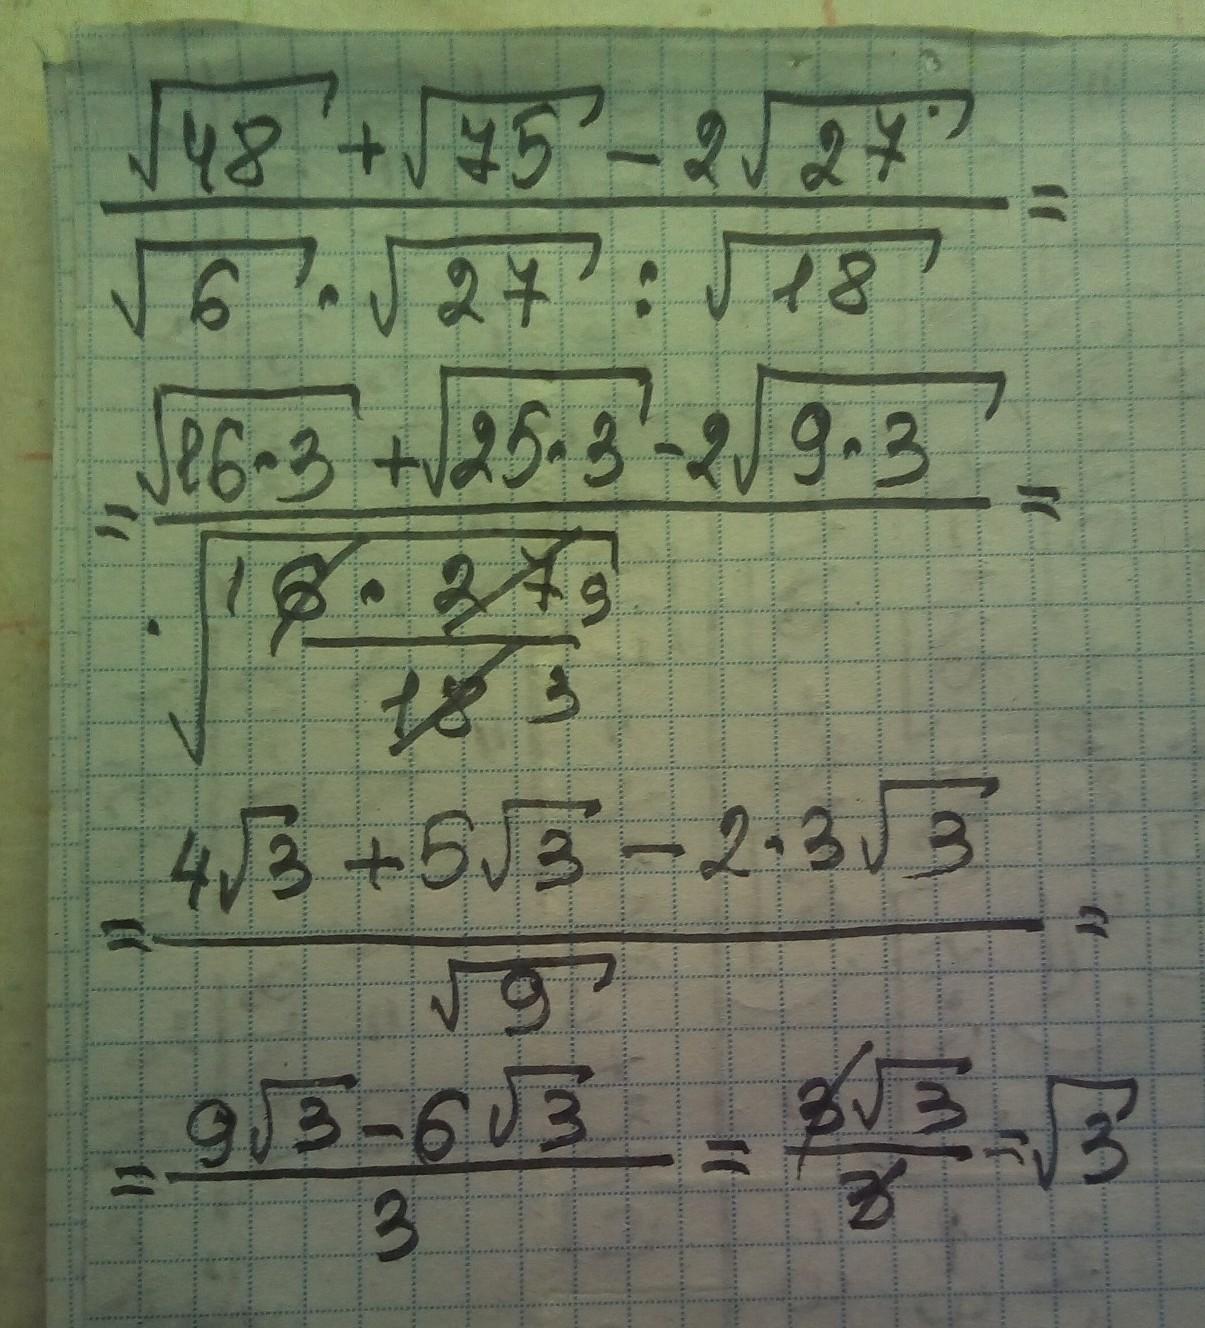 √48 + √75 - 2√27 =
√6 · √27 : √18
= √16·3 + √25·3 - 2√9·3 =
√1 6 · 27 9
18 3
4√3 + 5√3 - 2·3√3
= =
√9
= 9√3 - 6√3 = 3√3 = √3
3 3